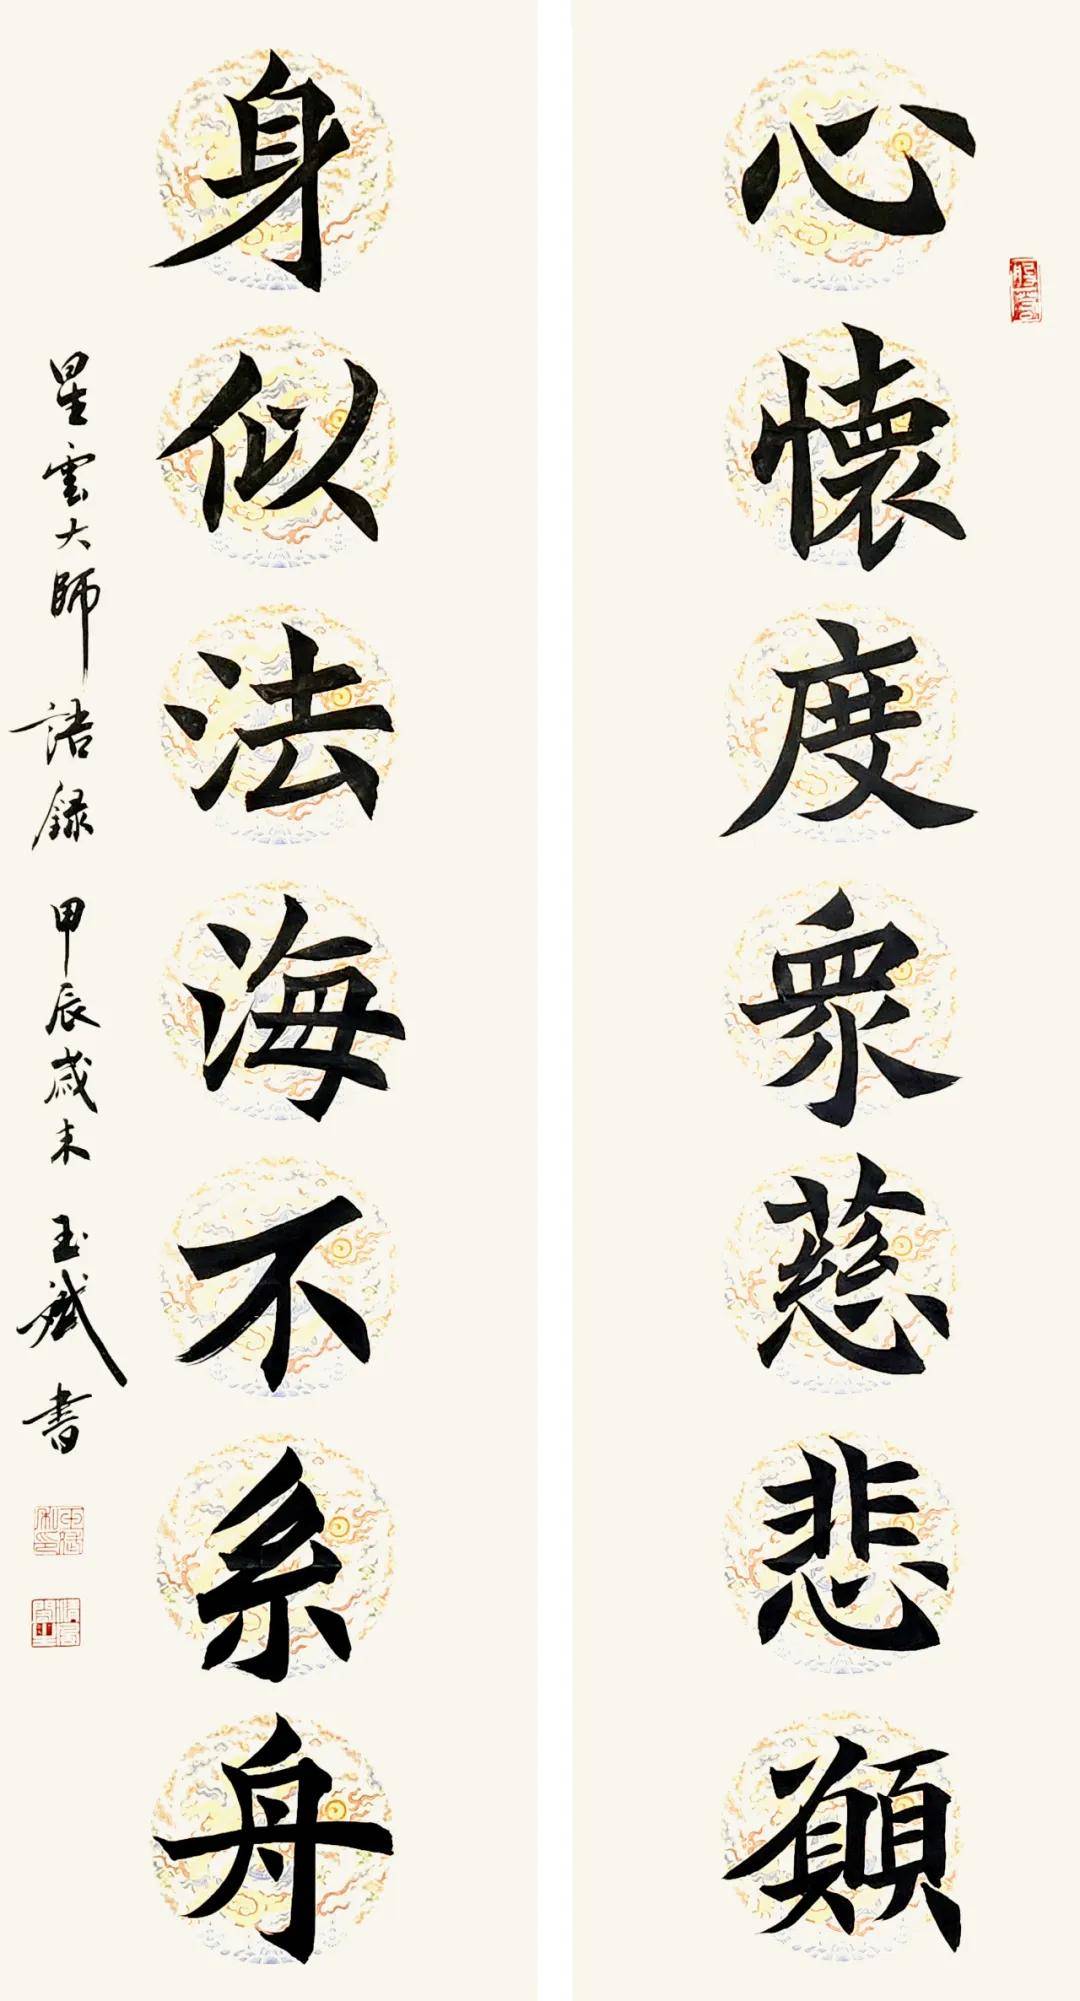 心懷度衆慈悲願
身似法海不系舟
星雲大師語錄 甲辰歲末 玉斌書